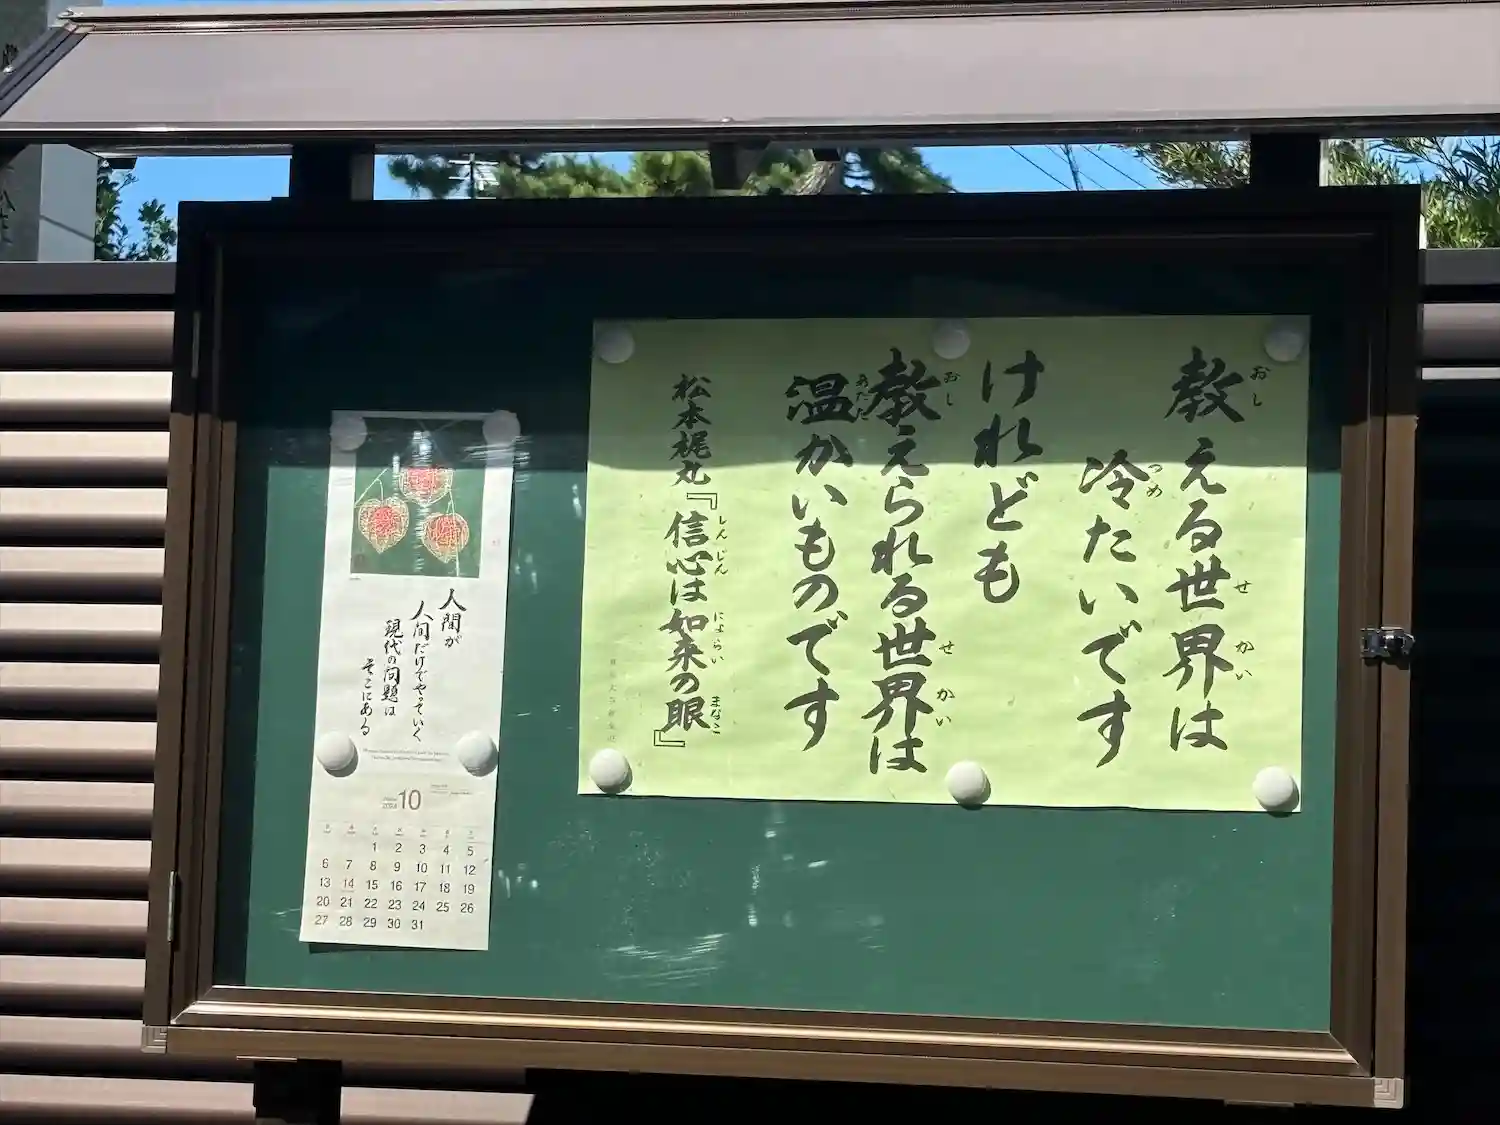 教える世界は
冷たいです
けれども
教えられる世界は
温かいものです
松本梶丸『信心は如来の眼』
人間が
人間だけでやっていく
現代の問題は
そこにある
10
1 2 3 4 5
6 7 8 9 10 11 12
13 14 15 16 17 18 19
20 21 22 23 24 25 26
27 28 29 30 31